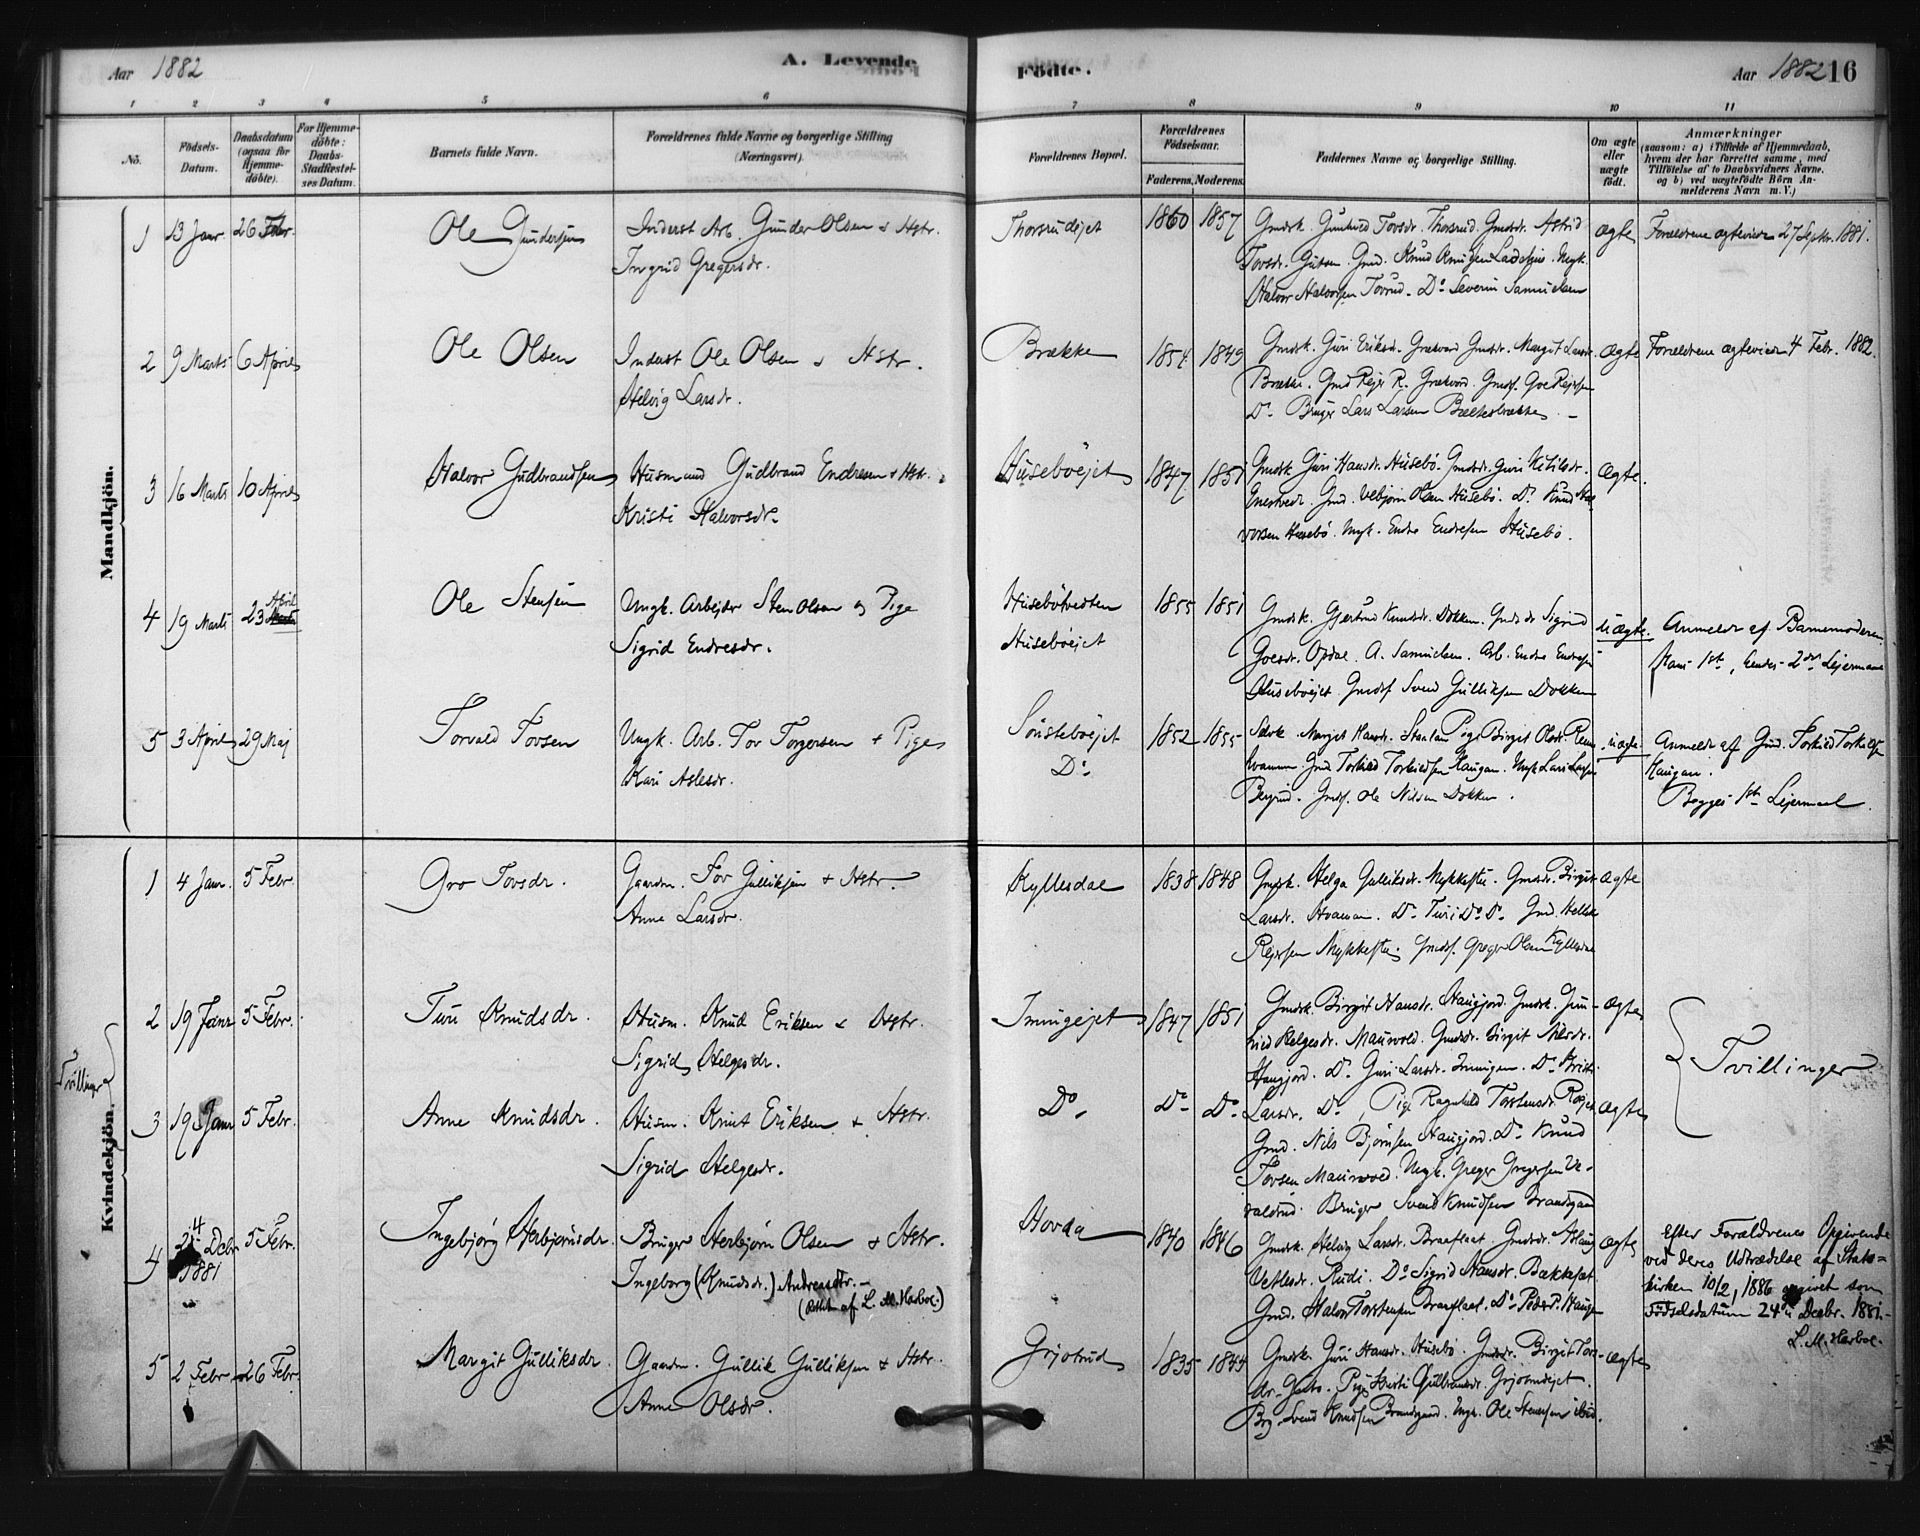 Aar 1882
A. Levende
Födte.
Aar 1882 16
1 2 3 4 5 6 7 8 9 10 11
No.
Födsels-
Datum.
Daabsdatum
(ogsaa for
Hjemme-
döbte).
For Hjemme-
döbte:
Daabs-
Stadfæstel-
ses Datum.
Barnets fulde Navn.
Forældrenes fulde Navne og borgerlige Stilling
(Næringsvei).
Forældrenes Bopæl.
Forældrenes
Födselsaar.
Faderens. Moderens.
Faddernes Navne og borgerlige Stilling.
Om ægte
eller
uægte
födt.
Anmærkninger
(saasom: a) i Tilfælde af Hjemmedaab,
hvem der har forrettet samme, med
Tilföielse af to Daabsvidners Navne,
og b) ved uægtefödte Börn An-
melderens Navn m. V.)
Mandkjön.
1 13 Janr. 26 Febr. Ole Gundersen
Inderst Arb. Gunder Olsen & Hstr.
Ingrid Gregersdr.
Thorsrudejet 1860 1857
Gmdsk. Gunhild Tovsdr. Thorsrud. Gmdsdr. Astrid
Tovsdr. Gmd. Knud Knudsen Ungk.
Halvor Halvorsen Tovrud. Do Severin Samuelsen
ægte Forældrene ægteviede 27 Septbr. 1881.
2 9 Marts 6 April Ole Olsen
Inderst Ole Olsen & Hstr.
Helvig Larsdr.
Brække 1854 1849
Gmdsk. Guri Eriksdr. Gmdsdr. Margit Larsdr.
Brække. Gmd Rejer R. Gmds.
Do Bruger Lars Larsen
ægte Forældrene ægteviede 4 Febr. 1882.
3 16 Marts 10 April Halvor Gudbrandsen
Husmand Gudbrand Endresen & Hstr.
Kristi Halvorsdr.
Huseböejet 1847 1851
Gmdsk Guri Hansdr. Husebö. Gmdsdr. Guri Ketilsdr.
Gmd. Vebjörn Olsen Husebö. Do Knud Hal-
vorsen Husebö. Ungk. Endre Endresen Husebö.
ægte.
4 19 Marts 23 April Ole Stensen
Ungk. Arbejder Sten Olsen og Pige
Sigrid Endresdr.
Husebötvedten
Huseböejet
1855 1851
Gmdsk. Gjertrud Knudsdr. Dokken. Gmdsdr Sigrid
Goesdr. Opdal. A. Samuelsen. Arb. Endre Endresen
Huseböejet Gmdsf Svend Gulliksen Dokken
uægte. Anmeldt af Barnemoderen.
Hans 1ste, hendes 2det Lejermaal
5 3 April 29 Maj Torvald Tovsen
Ungk. Arb. Tov Torgersen & Pige
Kari Aslesdr.
Sönsteböejet
Do
1852 1855
Margit Hansdr. Pige Birgit Olsdr.
Gmd Torkild Torkildsen Haugan. Ungk Lars Larsen
Bergrud. Gmdsf. Ole Nilsen Dokken.
uægte Anmeldt af Gmd. Torkild Torkildsen
Haugan.
Begges 1ste Lejermaal.
Kvindekjön.
1 4 Janr. 5 Febr. Gro Tovsdr.
Gaardm. Tov Gulliksen & Hstr.
Anne Larsdr.
Kyllesdal 1838 1848
Gmdsk. Helga Gulliksdr. Mykkestu. Gmdsdr. Birgit
Larsdr. Do Turi Do Do Gmd. Hellek
Rejersen Mykkestu. Gmdsf. Greger Olsen Kyllesdal
ægte
Tvillinger
2 19 Janr 5 Febr. Turi Knudsdr.
Husm. Knud Eriksen & Hstr.
Sigrid Helgesdr.
Imingejet 1847 1851
Gmdsk. Birgit Hansdr. Haugjord. Gmdsk. Gun-
hild Helgesdr. Maurvold. Gmdsdr. Birgit Nilsdr.
Haugjord. Do Guri Larsdr. Imingen. Do Kristi
ægte
Tvillinger
3 19 Janr 5 Febr. Anne Knudsdr.
Husm. Knut Eriksen & Hstr.
Sigrid Helgesdr.
Do Do Do
Larsdr. Do Pige Ragnhild Torstensdr.
Gmd. Nils Björnsen Haugjord. Do Knud
Tovsen Maurvold. Ungk. Greger Gregersen Ve-
raldrud. Bruger Svend Knudsen Brandsgaard
ægte
4 24 Debr 1881 5 Febr. Ingebjörg Herbjörnsdr.
Bruger Herbjörn Olsen & Hstr.
Ingeborg (Knudsdr.) Andreasdtr.
(Rettet af L. M. Harboe.)
Hovda 1840 1846
Gmdsk. Helvig Larsdr. Braaflaat. Gmdsdr. Aslaug
Vetlesdr. Rudi. Do Sigrid Hansdr. Bakketat
Gmd. Halvor Torstensen Braaflaat. Do Peder P. Haugen
ægte Efter Forældrenes Opgivende
ved deres Udtrædelse af Stats-
kirken 10/2, 1886 opgivet som
Födselsdatum 24de Decbr. 1881.
L. M. Harboe.
5 2 Febr 26 Febr. Margit Gulliksdr.
Gaardm. Gullik Gulliksen & Hstr.
Anne Olsdr.
Grjotrud 1835 1844
Gmdsk. Guri Hansdr. Husebö. Gmdsdr. Birgit Tors-
dr. Pige Kristi Gulbrandsdr. Grjotrudejet.
Brg Svend Knudsen Brandsgaard. Ungk. Ole Stensen ibid.
ægte